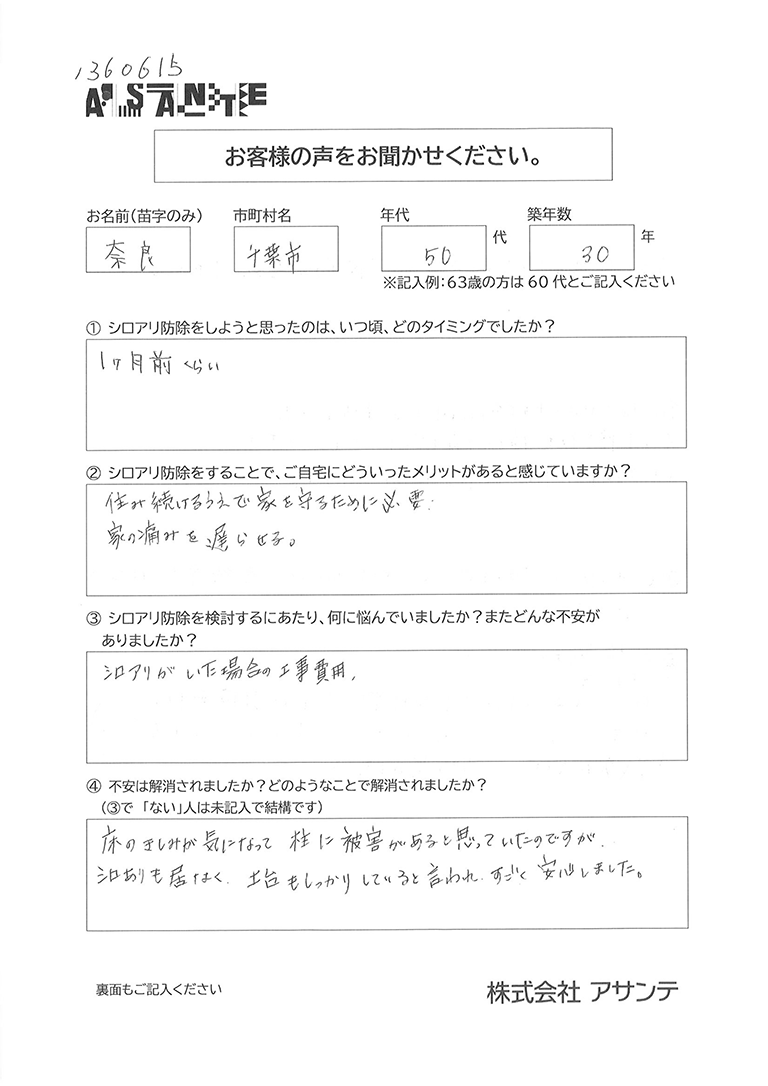 1360615
ASANTE
お客様の声をお聞かせください。
お名前(苗字のみ) 市町村名 年代 築年数
奈良 千葉市 50 代 30 年
※記入例:63歳の方は60代とご記入ください
① シロアリ防除をしようと思ったのは、いつ頃、どのタイミングでしたか?
1ヶ月前くらい
② シロアリ防除をすることで、ご自宅にどういったメリットがあると感じていますか?
住み続けるうえで家を守るために必要.
家の痛みを遅らせる。
③ シロアリ防除を検討するにあたり、何に悩んでいましたか?またどんな不安が
ありましたか?
シロアリがいた場合の工事費用.
④ 不安は解消されましたか?どのようなことで解消されましたか?
(③で 「ない」人は未記入で結構です)
床のきしみが気になって 柱に被害があると思っていたのですが.
シロありも居なく. 土台もしっかりしていると言われ.すごく安心しました。
裏面もご記入ください
株式会社 アサンテ